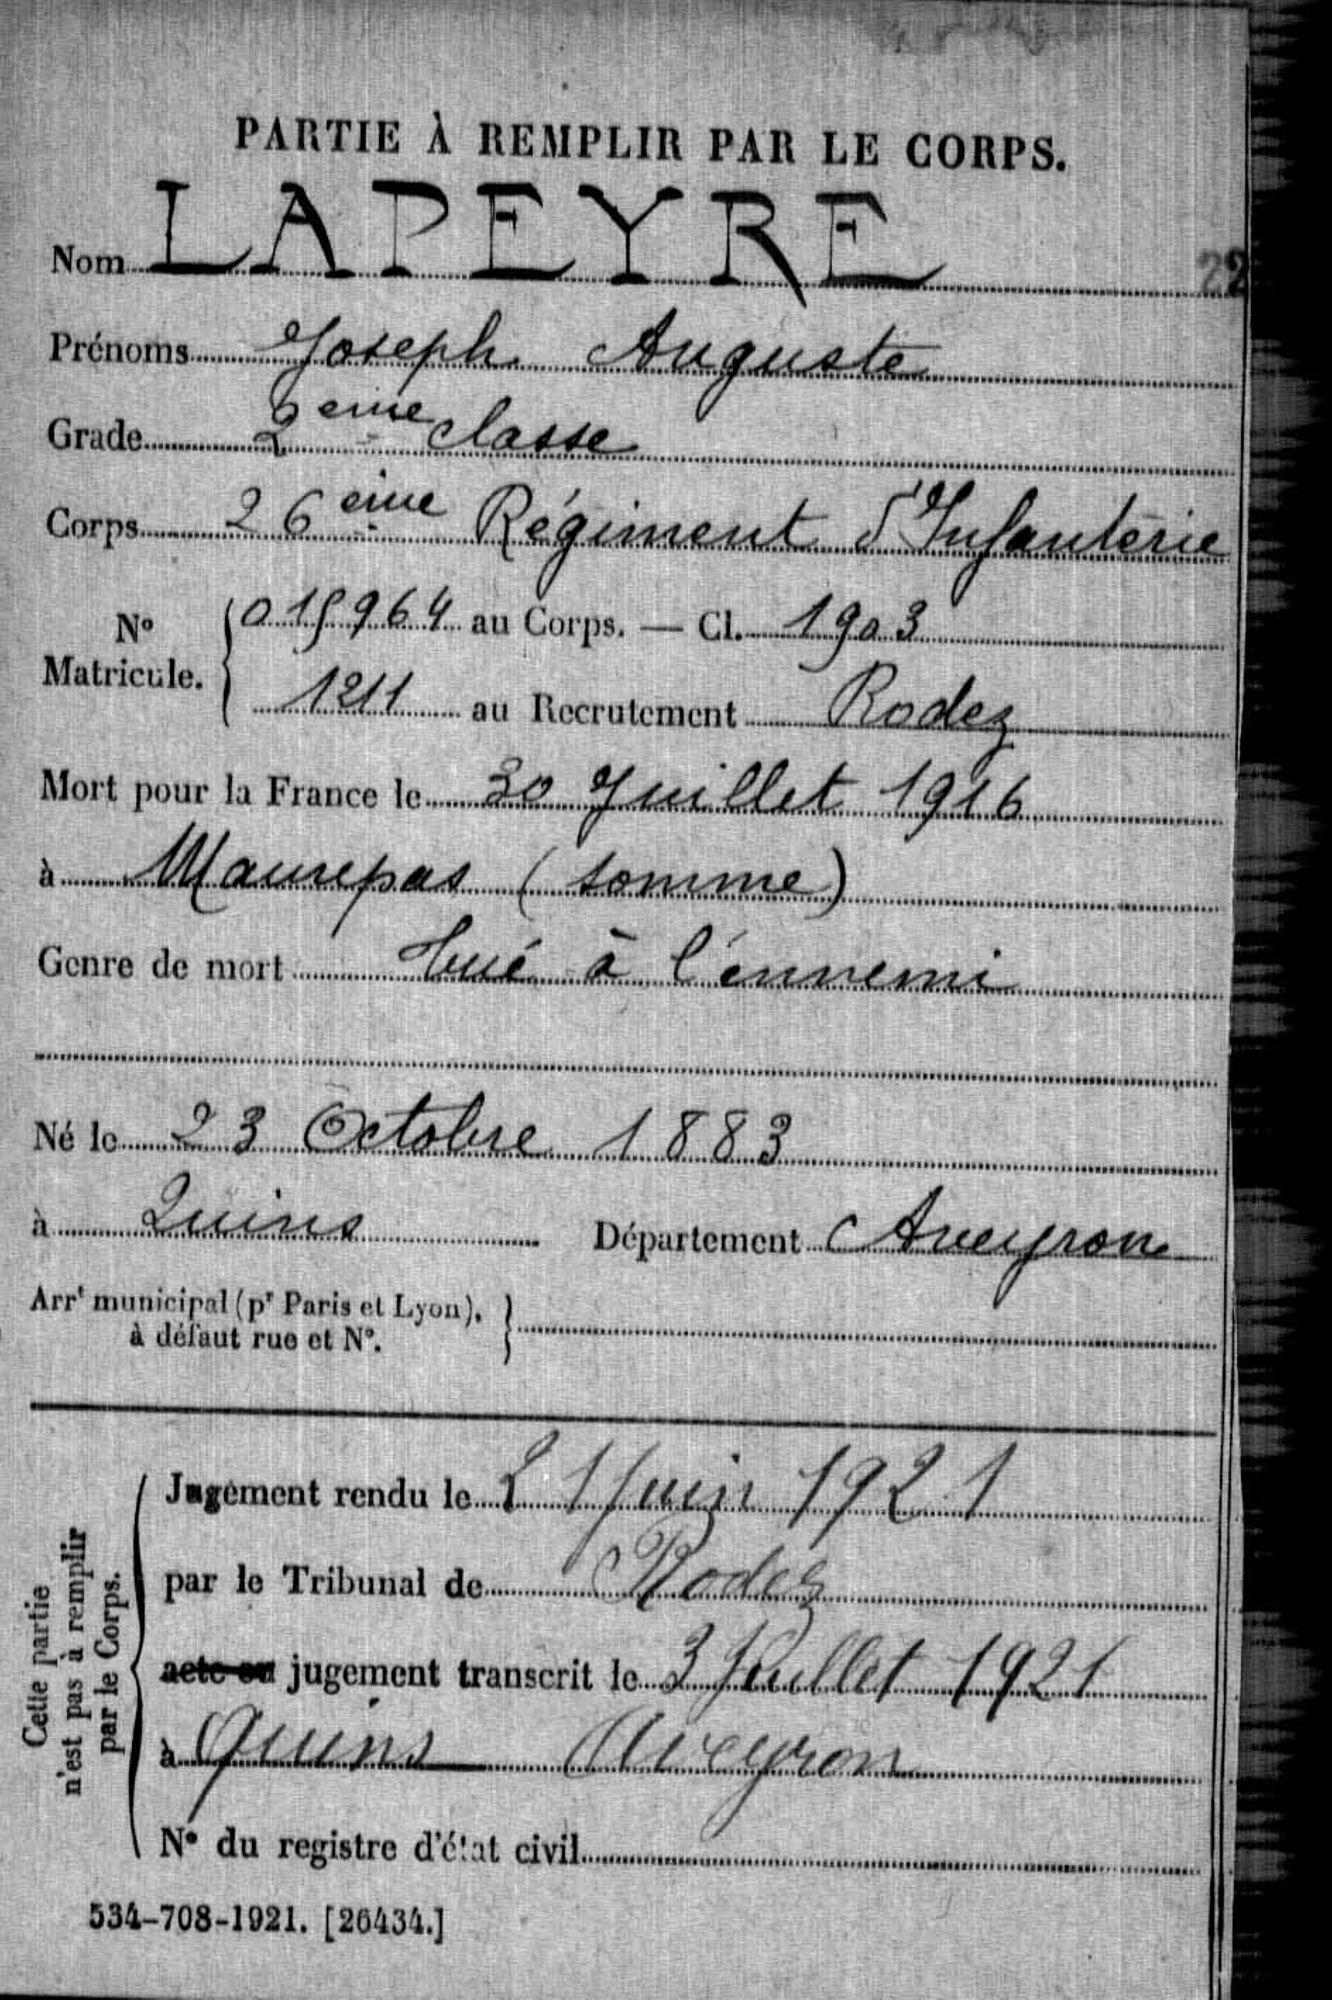 PARTIE À REMPLIR PAR LE CORPS.
Nom LAPEYRE
22
Prénoms Joseph Auguste
Grade 2eme classe
Corps 26eme Régiment d'Infanterie
N° Matricule. { 015964 au Corps. — Cl. 1903
1211 au Recrutement Rodez
Mort pour la France le 30 Juillet 1916
à Maurepas (Somme)
Genre de mort tué à l'ennemi
Né le 23 Octobre 1883
à Quins Département Aveyron
Arrt municipal (pr Paris et Lyon), }
à défaut rue et N°.
Cette partie
n'est pas à remplir
par le Corps.
Jugement rendu le 21 Juin 1921
par le Tribunal de Rodez
acte ou jugement transcrit le 3 Juillet 1921
à Quins Aveyron
N° du registre d'état civil
534-708-1921. [26434.]